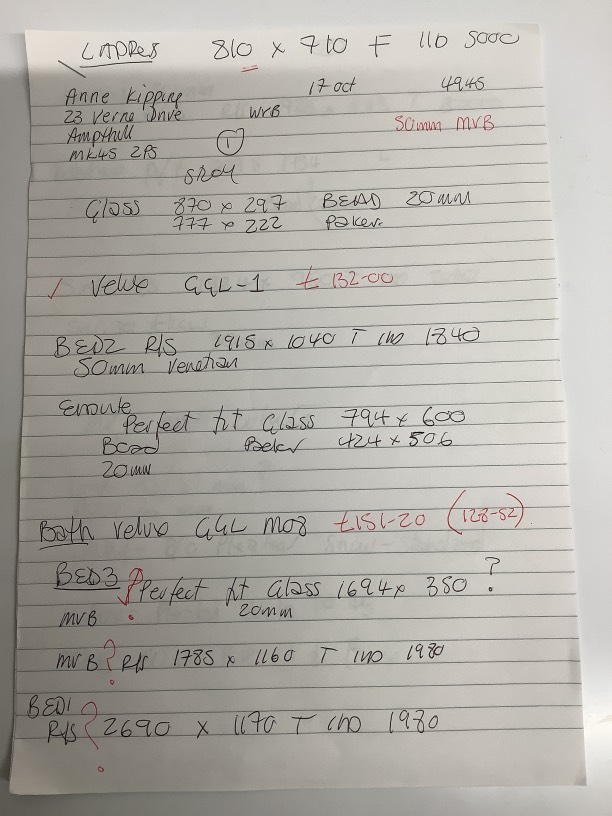 LADRES 810 x 710 F 110 5000
Anne Kipping 17 oct 4945
23 Verne Drive WVB 50mm MVB
Ampthill 1
MK45 2PS
Glass 870 x 297 BEAD 20mm
777 x 222 Paker
Velux GGL-1 £ 132-00
BED2 R/S 1915 x 1040 T 1840
50mm Venetian
Perfect fit Glass 794 x 600
Bead 424 x 506
20mm
Both velux GGL M08 £151-20 (128-52)
BED3 ? Perfect fit Glass 1694 x 380 ?
MVB 20mm
MVB ? R/S 1785 x 1160 T 1980
BED1
R/S ? 2690 x 1170 T 1980